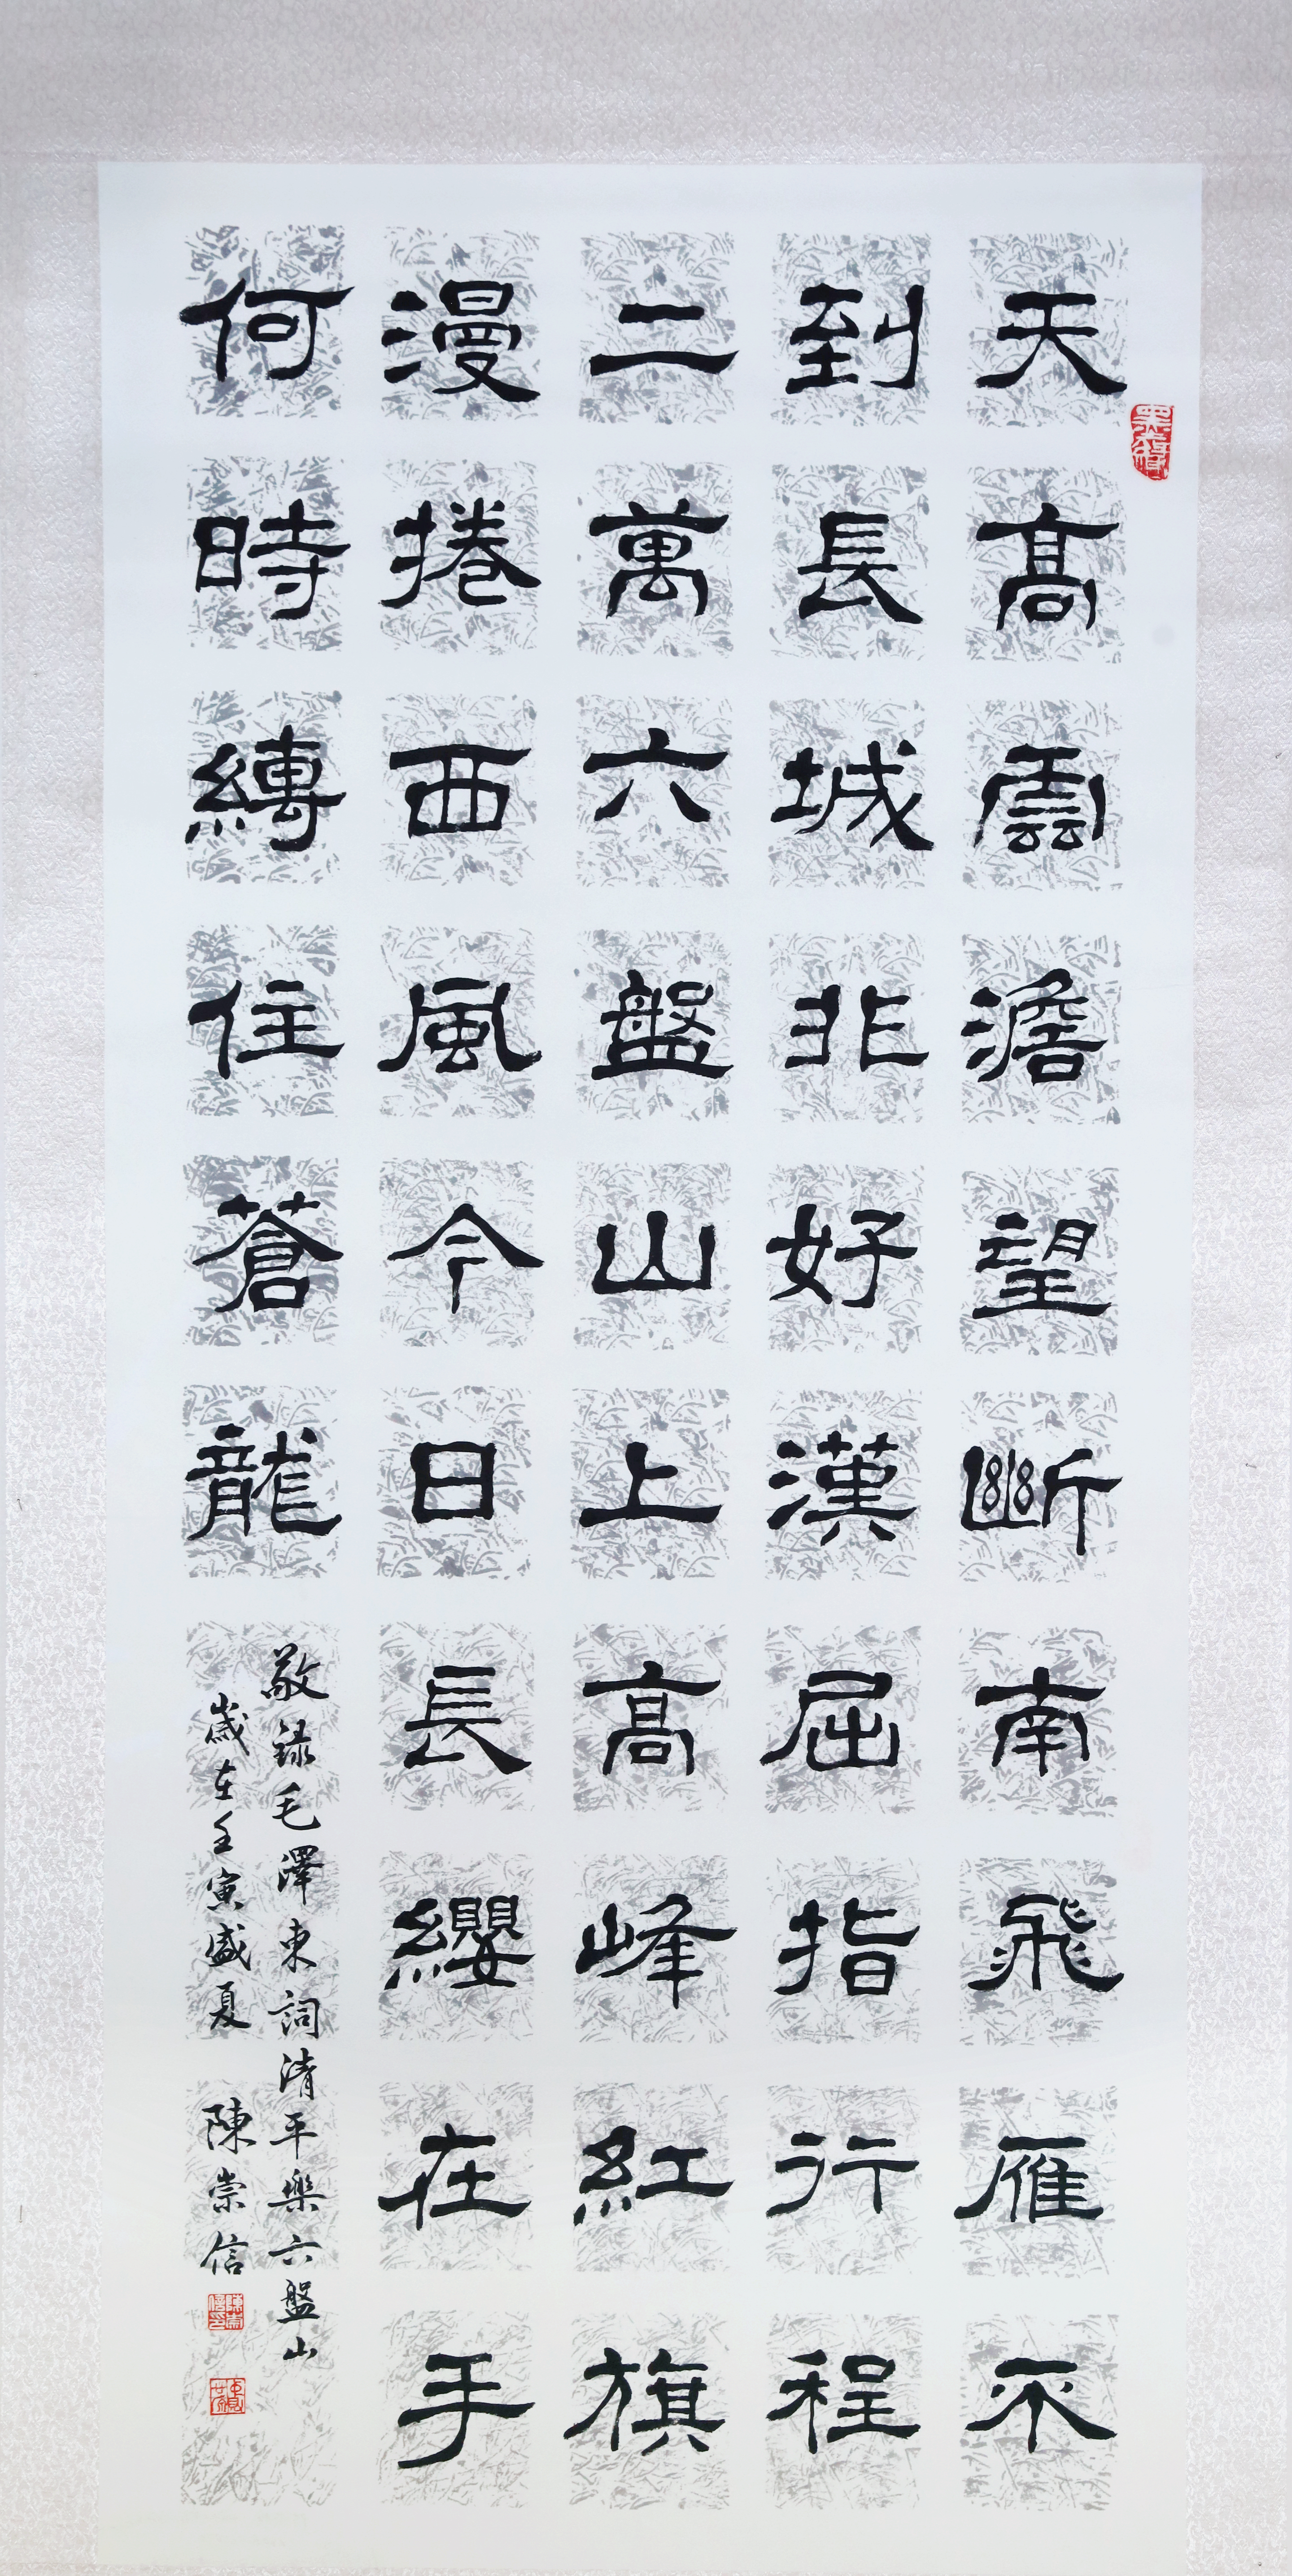 天高雲澹望斷南飛雁不
到長城非好漢屈指行程
二萬六盤山上高峰紅旗
漫捲西風今日長纓在手
何時縛住蒼龍
敬録毛澤東詞清平樂六盤山
歲在壬寅盛夏 陳崇信
陳崇信印